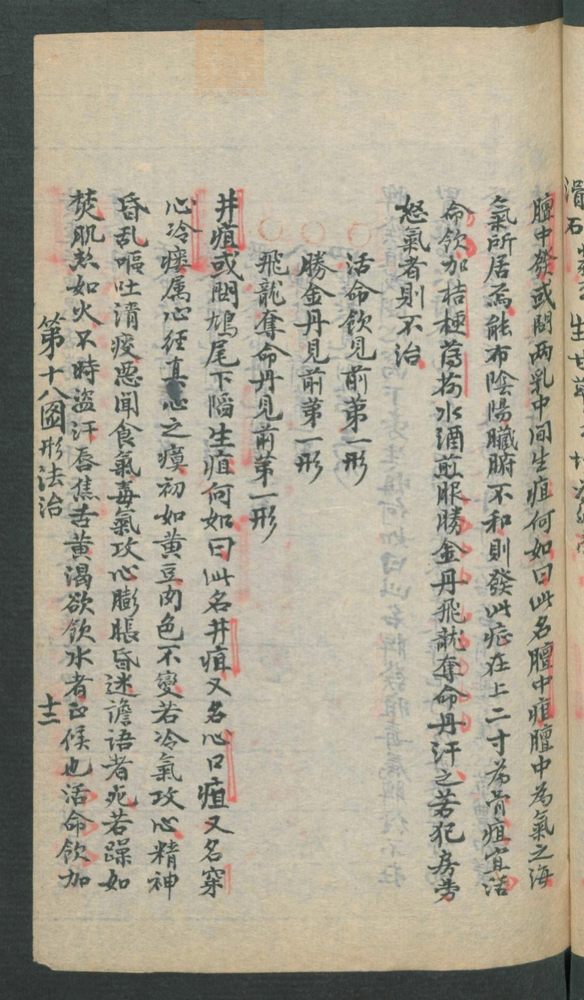 膻中發或問兩乳中间生疽何如曰此名膻中疽膻中為氣之海
氣所居焉能布陰陽臟腑不和則發此症在上二寸為骨疽宜活
命飲加桔梗薄荷水酒煎服勝金丹飛龍奪命丹汗之若犯房劳
怒氣者則不治
活命飲見前第一形
勝金丹見前第一形
飛龍奪命丹見前第一形
井疽或問鳩尾下陷生疽何如曰此名井疽又名心口疽又名穿
心冷瘻属心経真心之瘼初如黄豆肉色不變若冷氣攻心精神
昏乱嘔吐清痰惡闻食氣毒氣攻心膨脹昏迷谵语者死若躁如
焚肌热如火不時盗汗唇焦舌黄渴欲飲水者正候也活命飲加
第十八圖形法治
十三